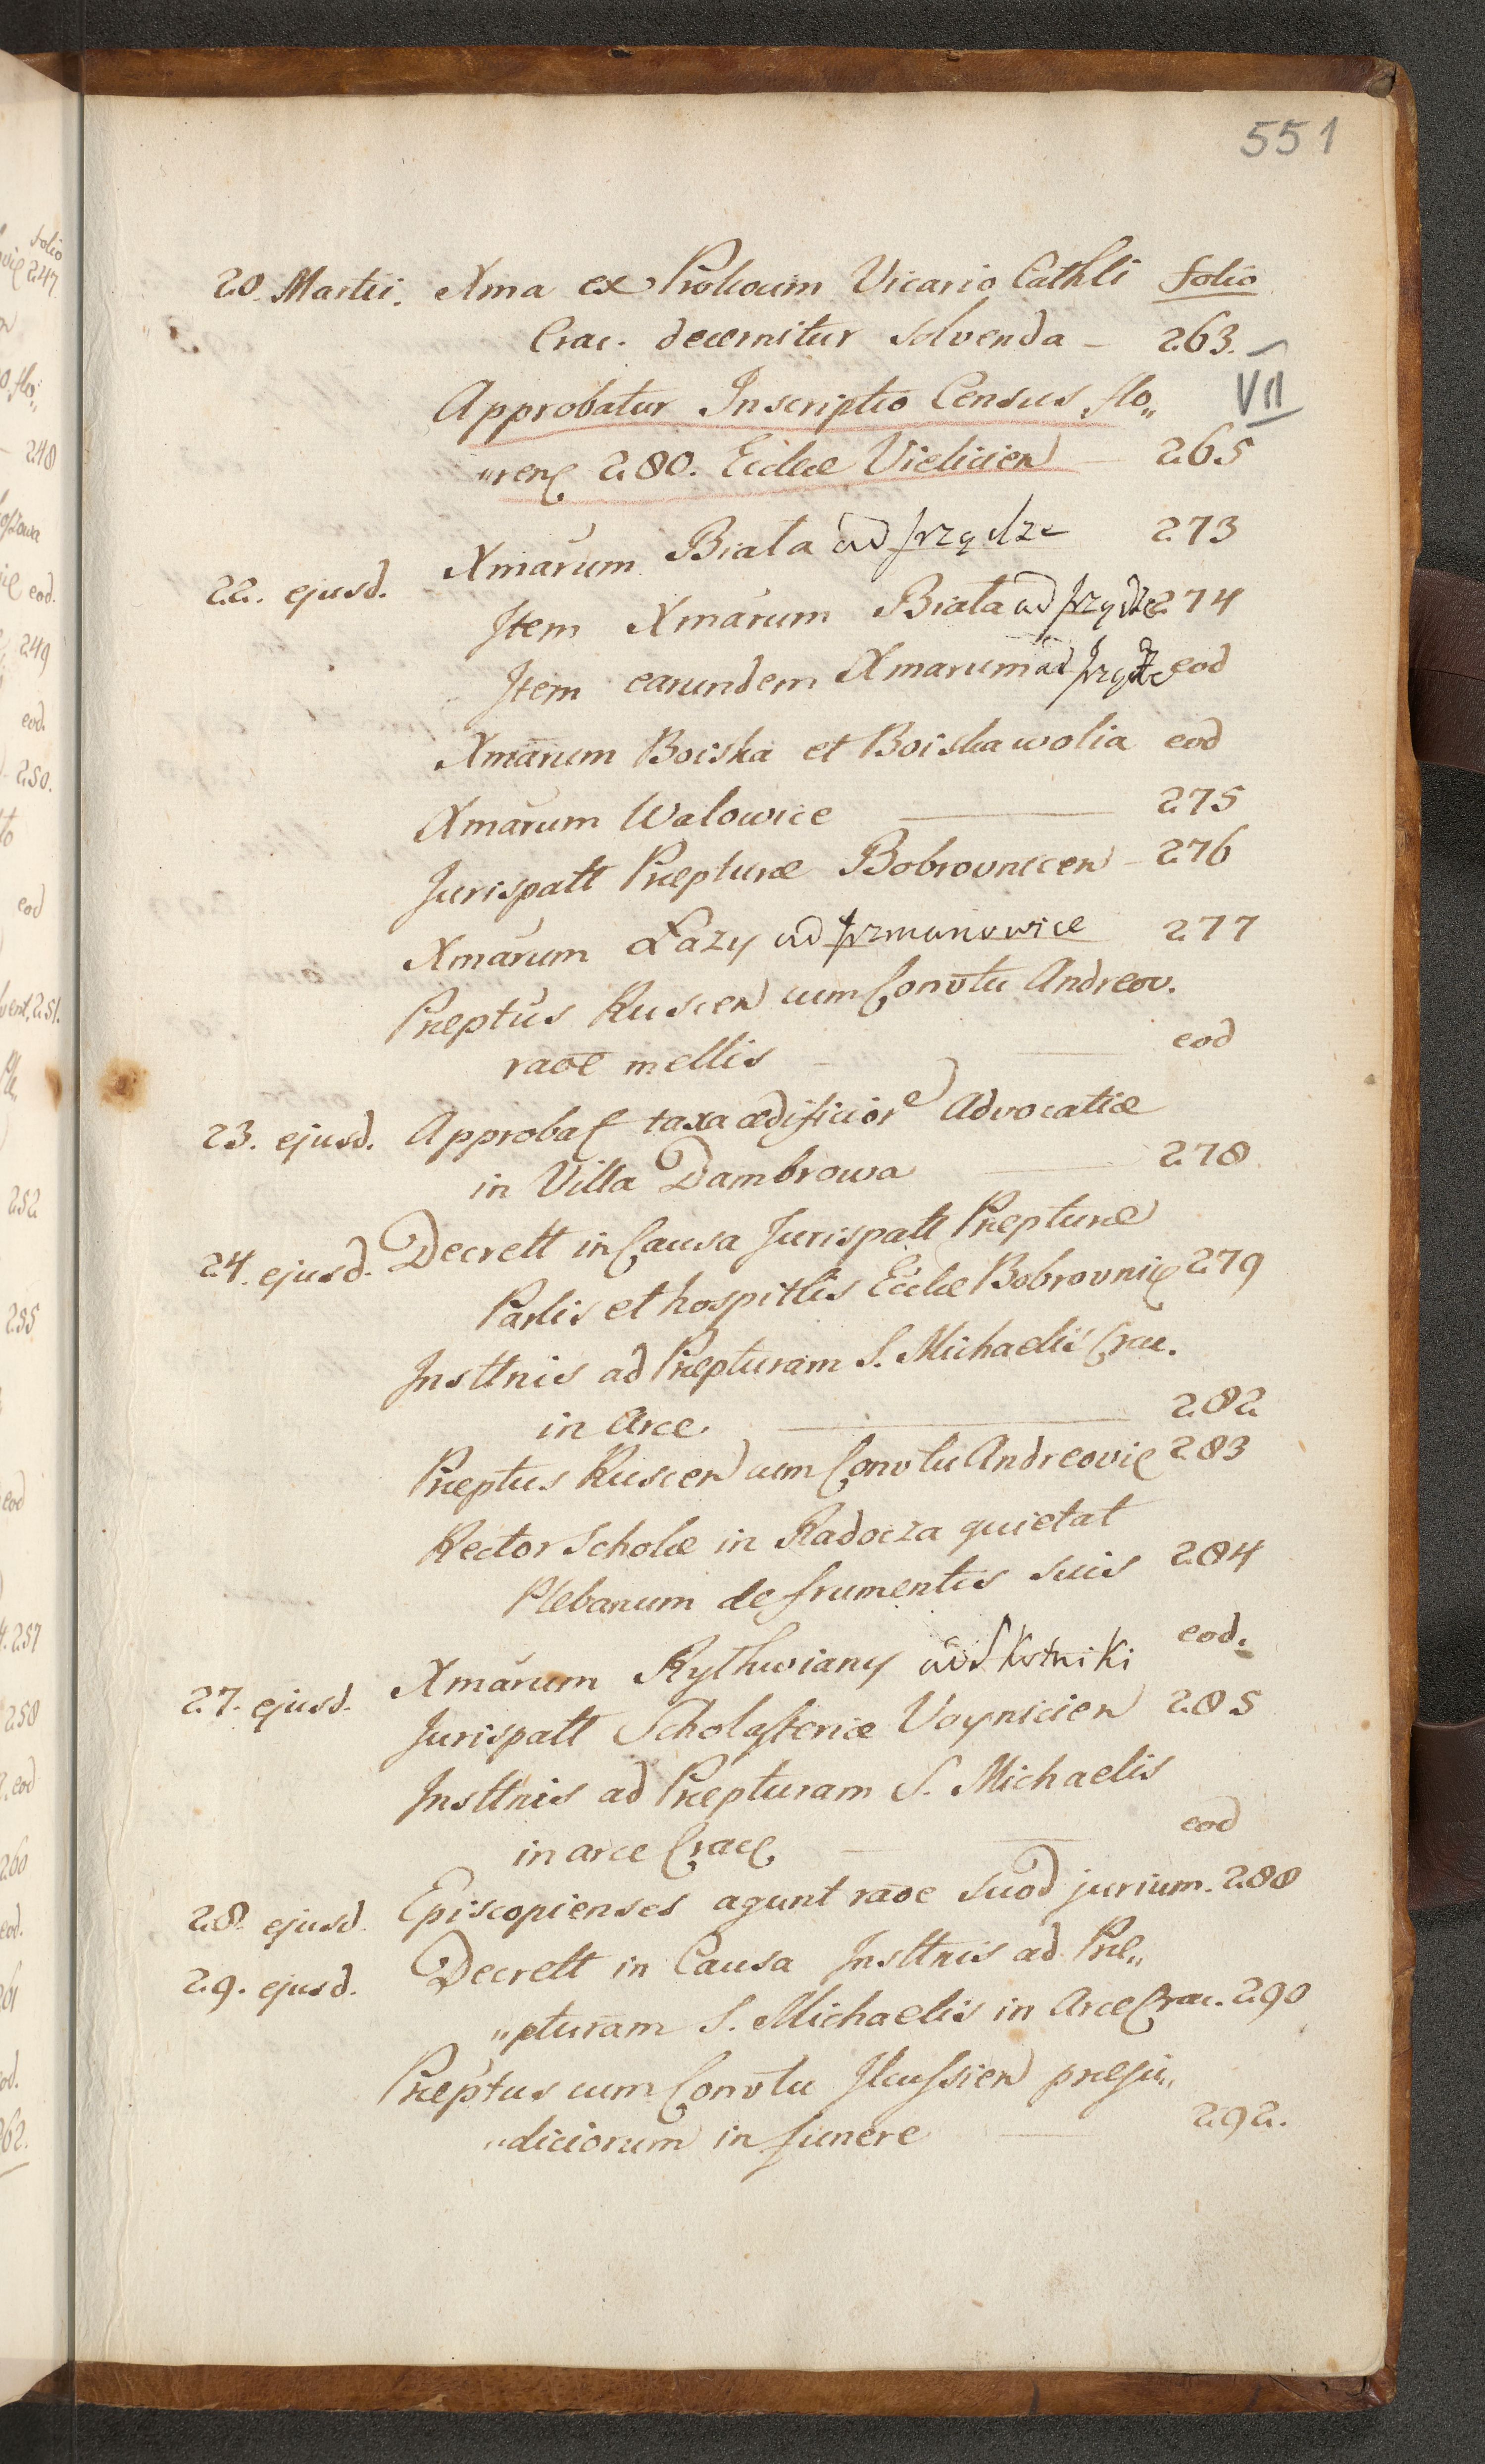 551
20. Martii. Xma ex Prokocim Vicario Cathli folio
Crac. decernitur solvenda – 263.
Approbatur Inscriptio Census flo„
VII
„renę 280. Eccliæ Vielicien – 265
Xmarum Biała ad przędze 273
22. ejusd.
Item Xmarum Biała ad przędze 274
Item earundem Xmarum ad przędze eod
Xmarum Boiska et Boiska wolia eod
Xmarum Walowice — 275
Jurispatt Præpturæ Bobrovnicen – 276
Xmarum Łazy ad 277
Præptus Ruscen cum Convtu Andreov.
raõe mellis — eod
23. ejusd. Approbat taxa ædificior Advocatiæ
in Villa Dambrowa — 278
24. ejusd. Decrett in Causa Jurispatt Præpturæ
Parlis et hospitlis Eccliæ Bobrovnic 279
Insttnis ad Præpturam S. Michaelis Crac.
in Arce. — 282
Præptus Ruscen cum Convtu Andreovic 283
Rector Scholæ in Radocza quietat
Plebanum de frumentis suis 284
Xmarum Rythwiany ad eod.
27. ejusd.
Jurispatt Scholasteriæ Voynicien 285
Insttnis ad Præpturam S. Michaelis
in arce Crac — eod
28. ejusd. Episcopienses agunt raõe suod jurium. 288
29. ejusd. Decrett in Causa Insttnis ad Præ„
„pturam S. Michaelis in Arce Crac. 290
Præptus cum Convtu præju„
„diciorum in funere — 292.